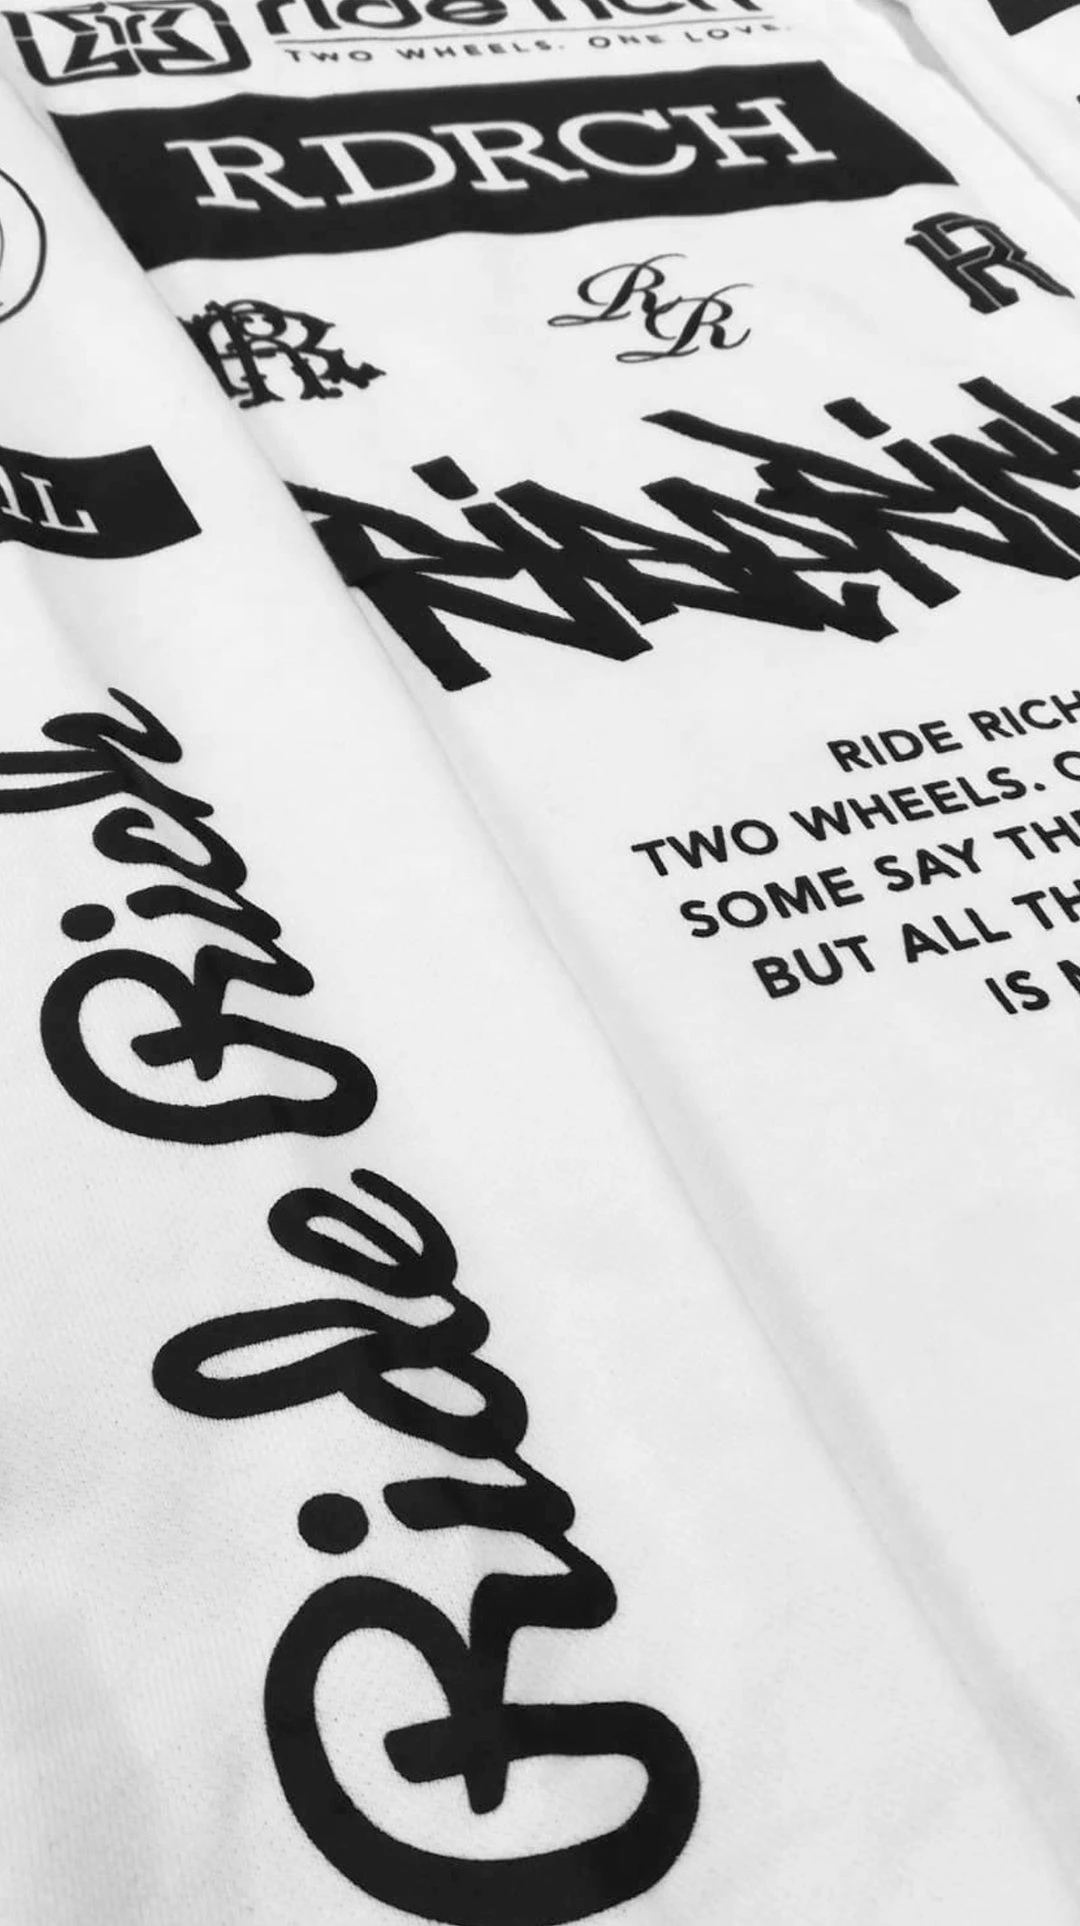 ride rich
TWO WHEELS. ONE LOVE.
RDRCH
RR
RR
R
RIDE RICH
TWO WHEELS. O
SOME SAY TH
BUT ALL TH
IS
Ride Rich